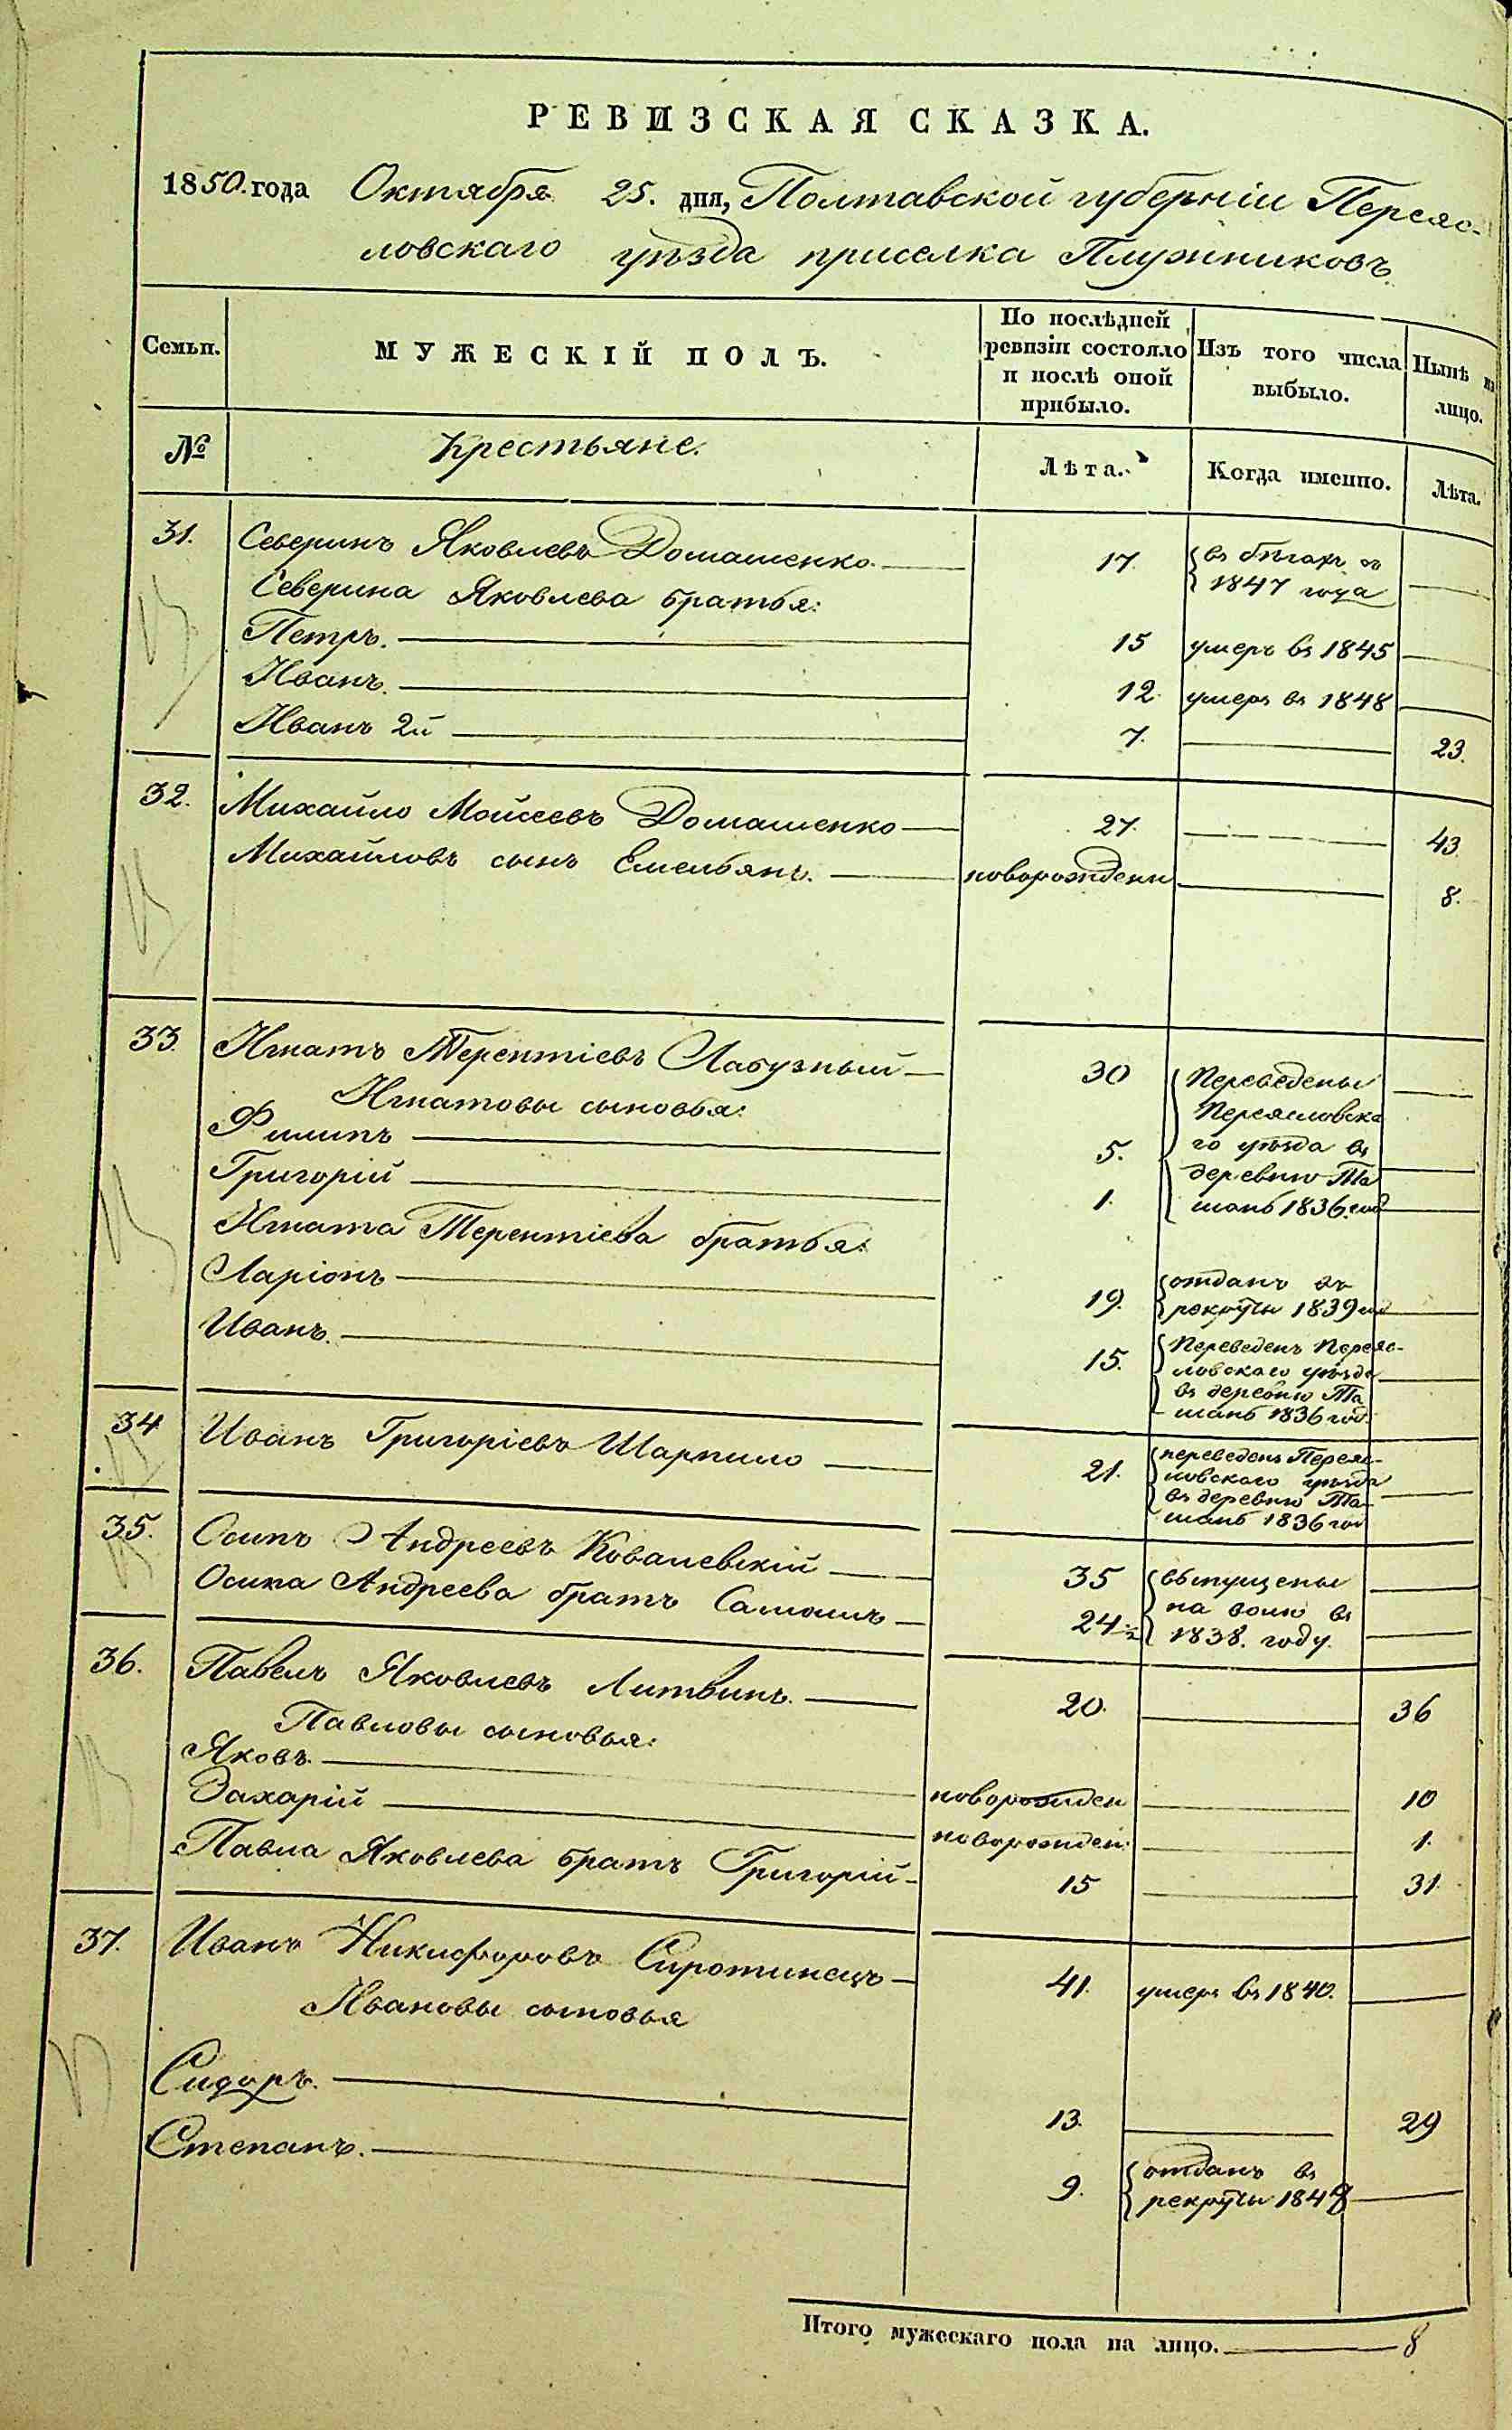 РЕВИЗСКАЯ СКАЗКА.
1850. года Октября 25. дня, Полтавской губерніи Переяс-
ловскаго уѣзда приселка Плужниковъ
Семьи.
МУЖЕСКІЙ ПОЛЪ.
По послѣдней ревизіи состояло и послѣ оной прибыло.
Изъ того числа выбыло.
Нынѣ на лицо.
№
Крестьяне.
Лѣта.
Когда именно.
Лѣта.
31. Северинъ Яковлевъ Домашенко 17 въ бѣгахъ съ
1847 года
Северина Яковлева братья:
Петръ. 15 умеръ въ 1845
Иванъ. 12 умеръ въ 1848
Иванъ 2й 7. 23.
32. Михайло Мойсеевъ Домашенко 27. 43
Михайловъ сынъ Емельянъ. новорожденн 8.
33. Игнатъ Терентіевъ Лабузный 30 Переведены
Игнатовы сыновья: Переясловска
Филипъ 5. го уѣзда въ
Григорій 1. деревню Та
шань 1836 год
Игната Терентіева братья:
Ларіонъ 19. отданъ въ
рекруты 1839 год
Иванъ. 15. Переведенъ Переяс-
ловскаго уѣзда
въ деревню Та
шань 1836 год.
34 Иванъ Григоріевъ Шарпило 21. переведенъ Переяс-
ловскаго уѣзда
въ деревню Та-
шань 1836 год
35. Осипъ Андреевъ Ковалевскій 35 выпущены
Осипа Андреева братъ Самоилъ 24 ½ на волю въ
1838. году.
36. Павелъ Яковлевъ Литвинъ. 20. 36
Павловы сыновья:
Яковъ. новорожден 10
Захарій новорожден: 1.
Павла Яковлева братъ Григорій 15 31
37. Иванъ Никифоровъ Сиротинецъ 41. умеръ въ 1840.
Ивановы сыновья
Сидоръ. 13. 29
Степанъ. 9. отданъ въ
рекруты
Итого мужескаго пола на лицо. 8